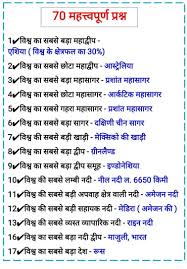 70 महत्त्वपूर्ण प्रश्न
1✔विश्व का सबसे बड़ा महाद्वीप -
एशिया ( विश्व के क्षेत्रफल का 30%)
2✔विश्व का सबसे छोटा महाद्वीप - आस्ट्रेलिया
3✔विश्व का सबसे बड़ा महासागर - प्रशांत महासागर
4✔विश्व का सबसे छोटा महासागर - आर्कटिक महासागर
5✔विश्व का सबसे गहरा महासागर - प्रशांत महासागर
6✔विश्व का सबसे बड़ा सागर - दक्षिणी चीन सागर
7✔विश्व की सबसे बड़ी खाड़ी - मेक्सिको की खाड़ी
8✔विश्व का सबसे बड़ा द्वीप - ग्रीनलैण्ड
9✔विश्व का सबसे बड़ा द्वीप समूह - इण्डोनेशिया
10✔विश्व की सबसे लम्बी नदी - नील नदी ल. 6650 किमी
11✔विश्व की सबसे बड़ी अपवाह क्षेत्र वाली नदी - अमेजन नदी
12✔विश्व की सबसे बड़ी सहायक नदी - मेडिरा ( अमेजन की )
13✔विश्व की सबसे व्यस्त व्यापारिक नदी - राइन नदी
16✔विश्व का सबसे बड़ा नदी द्वीप - माजुली, भारत
17✔विश्व का सबसे बड़ा देश - रूस